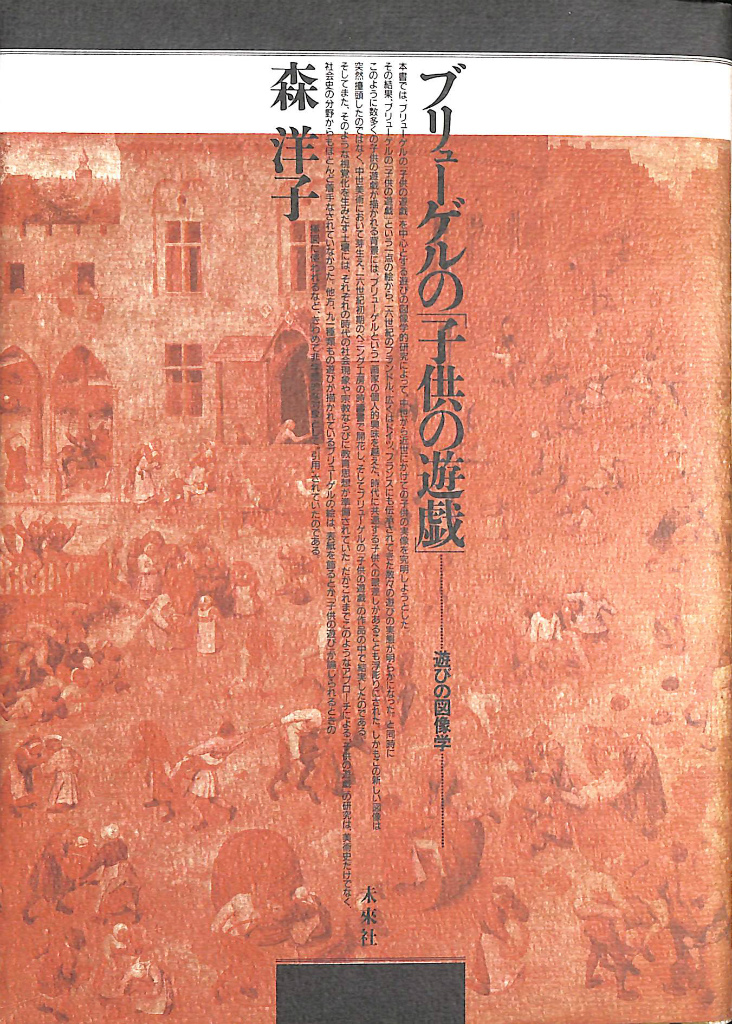 ブリューゲルの「子供の遊戯」
遊びの図像学
本書では、ブリューゲルの「子供の遊戯」を中心とする遊びの図像学的研究によって、中世から近世にかけての子供の実像を究明しようとした。
その結果、ブリューゲルの「子供の遊戯」という一点の絵から、一六世紀のフランドル、広くはドイツ、フランスにも伝承されてきた数々の遊びの実態が明らかになった。と同時に
このように数多くの子供の遊戯が描かれる背景には、ブリューゲルという一画家の個人的興味を越えた、時代に共通する子供への眼差しがあることも浮彫りにされた。しかもこの新しい図像は
突然擡頭したのではなく、中世美術において芽生え、一六世紀初期のベニング工房の時禱書で開花し、そしてブリューゲルの「子供の遊戯」の作品の中で結実したのである。
そしてまた、そのような視覚化を生みだす土壌には、それぞれの時代の社会現象や宗教ならびに教育思想が準備されていた。だがこれまでこのようなアプローチによる「子供の遊戯」の研究は、美術史だけでなく、
社会史の分野からもほとんど着手なされていなかった。他方、九一種類もの遊びが描かれているブリューゲルの絵は、表紙を飾るとか「子供の遊び」が論じられるときの
挿図に使われるなど、きわめて引用されていたのである。
森 洋子
未来社